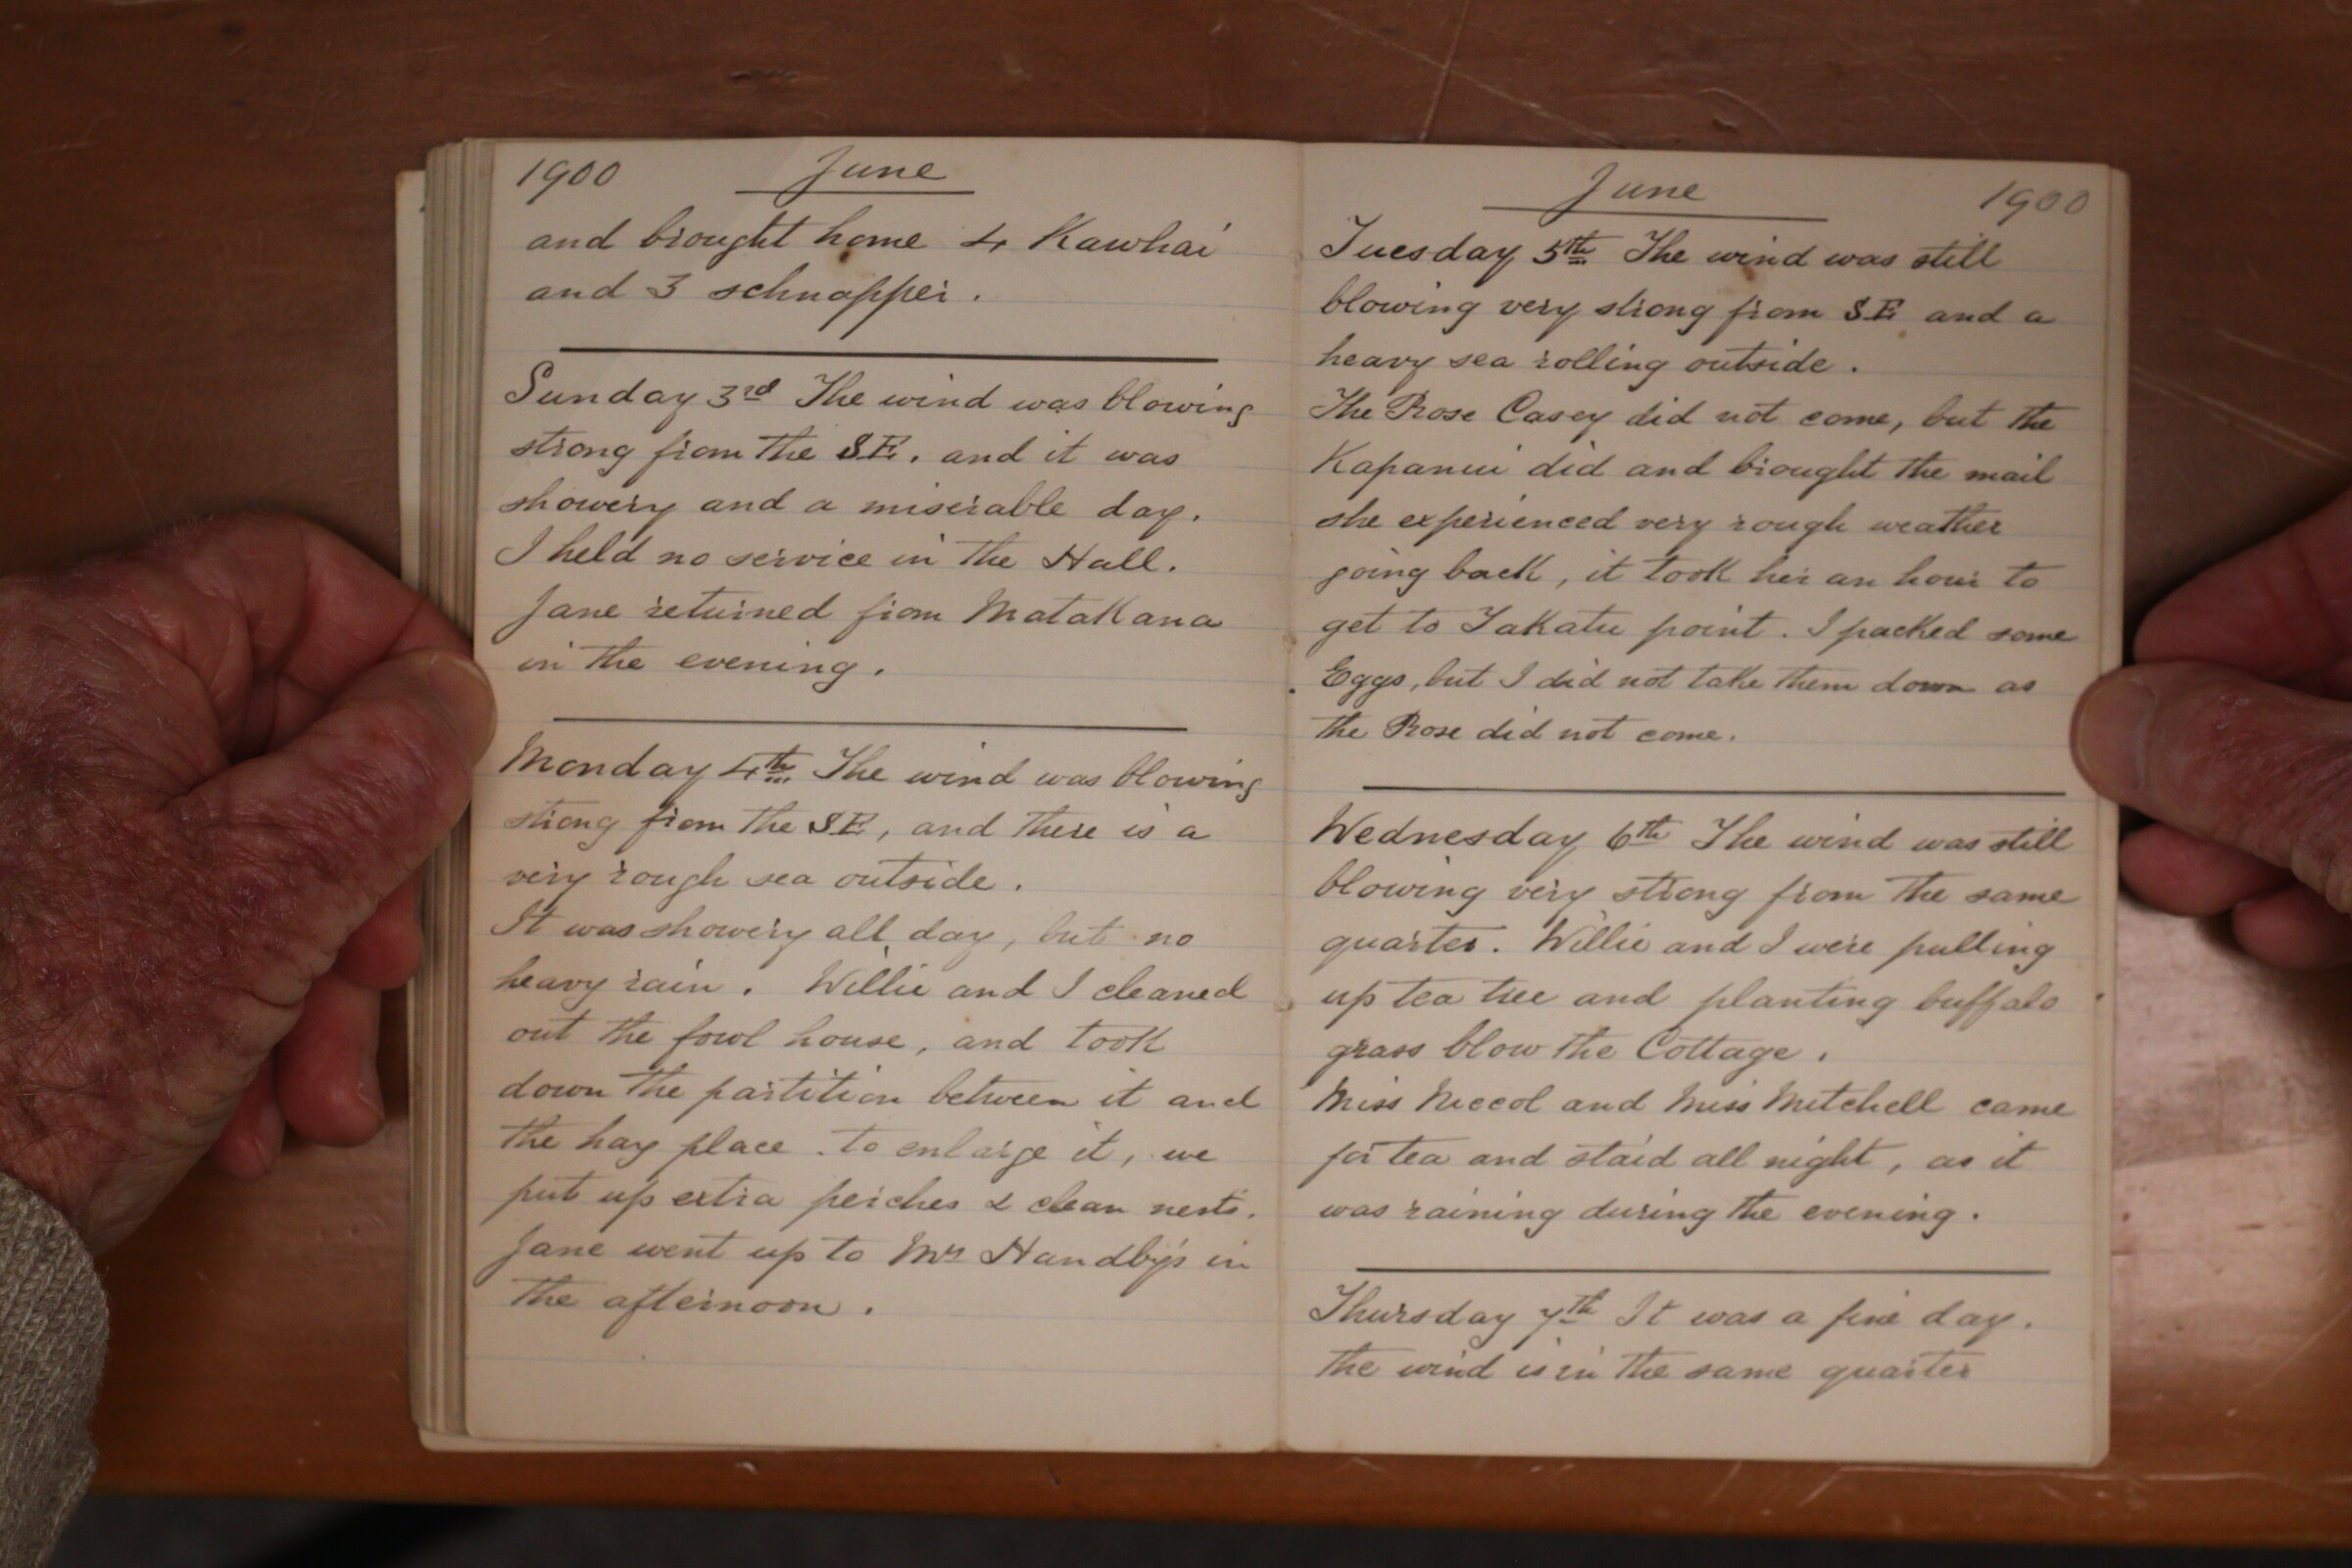 1900 June
and brought home 4 Kawhai
and 3 schnapper.
Sunday 3rd The wind was blowing
strong from the SE. and it was
showery and a miserable day.
I held no service in the Hall.
Jane returned from Matakana
in the evening.
Monday 4th The wind was blowing
strong from the SE, and there is a
very rough sea outside.
It was showery all day, but no
heavy rain. Willie and I cleaned
out the fowl house, and took
down the partition between it and
the hay place. to enlarge it, we
put up extra perches & clean nests.
Jane went up to Mrs Handby's in
the afternoon.
June 1900
Tuesday 5th The wind was still
blowing very strong from SE and a
heavy sea rolling outside.
The Rose Casey did not come, but the
Kapanui did and brought the mail
she experienced very rough weather
going back, it took her an hour to
get to Takatu point. I packed some
Eggs, but I did not take them down as
the Rose did not come.
Wednesday 6th The wind was still
blowing very strong from the same
quarter. Willie and I were pulling
up tea tree and planting buffalo
grass blow the Cottage.
Miss Niccol and Miss Mitchell came
for tea and staid all night, as it
was raining during the evening.
Thursday 7th It was a fine day.
the wind is in the same quarter